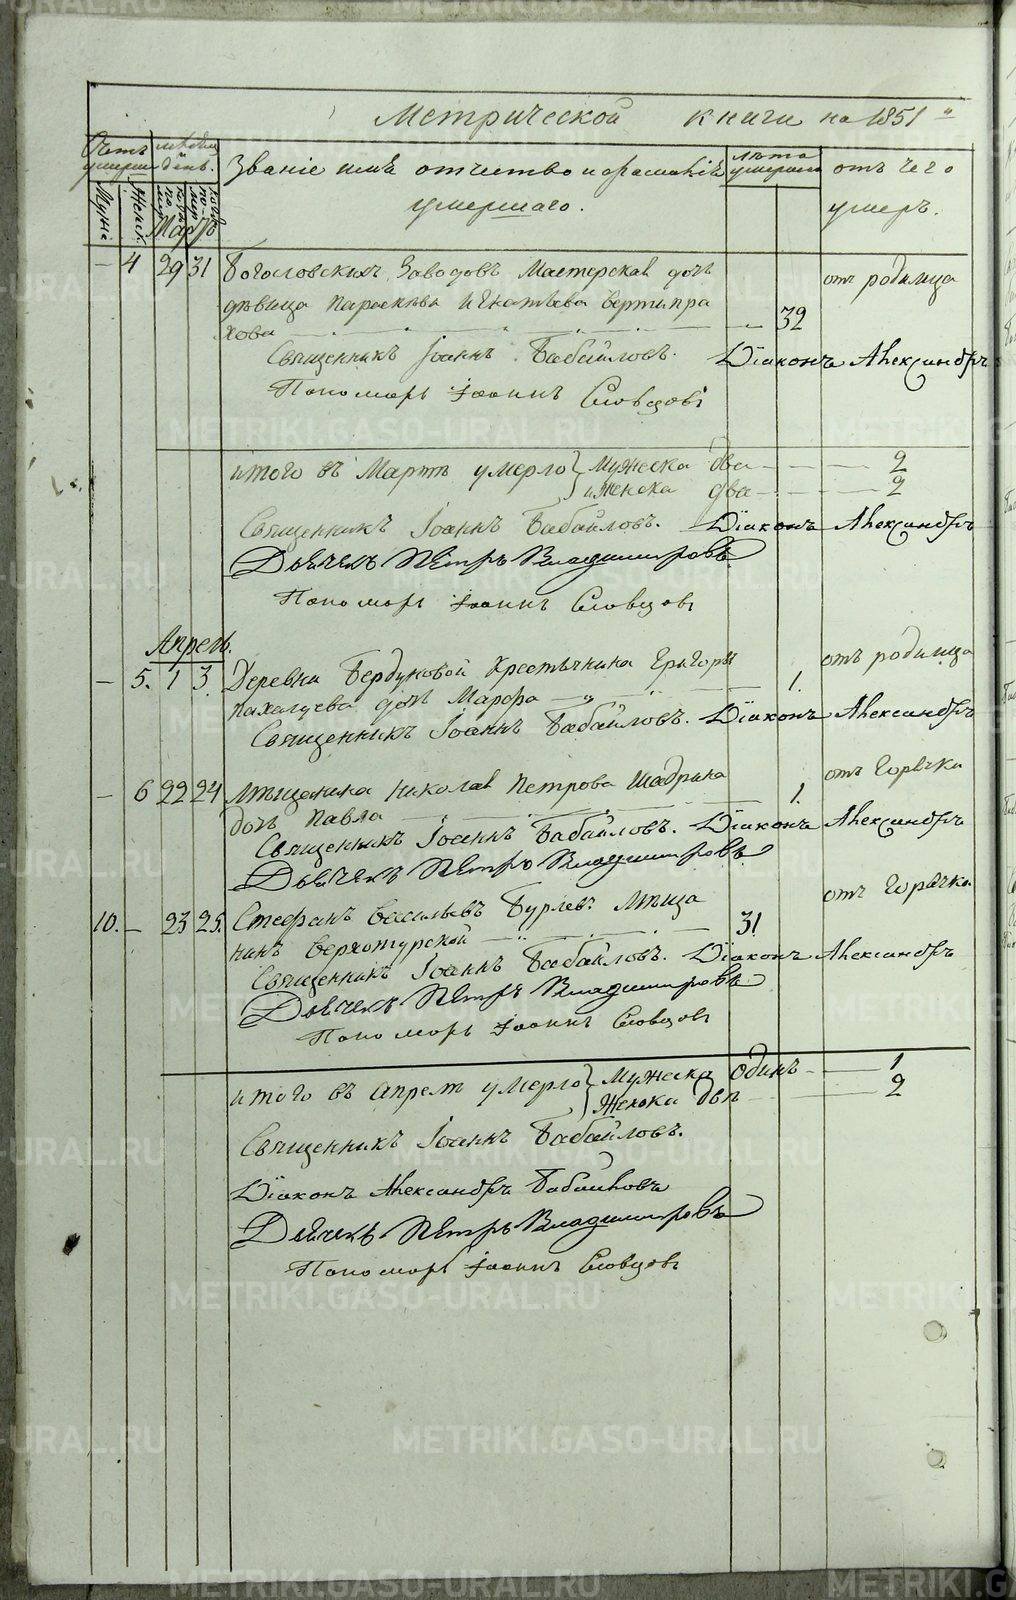 Метрической книги на 1851
Счетъ умерш
Мѣсяцъ день.
Званіе имя отчество и прозваніе умершаго.
Лѣта умершаго
отъ чего умеръ.
Муж
Женск.
Мартъ
— 4 29 31 Богословскихъ Заводовъ Мастерская дочь
отъ родимца
дѣвица Параскѣва Игнатьева Вертипра
хова 32
Священникъ Іоаннъ Бабайловъ. Діаконъ Александръ
Пономарь Іоаннъ Словцовъ
итого въ Мартѣ умерло Мужеска два 2
и Женска два 2
Священникъ Іоаннъ Бабайловъ. Діаконъ Александръ
Дьячекъ Петръ Владимировъ
Пономарь Іоаннъ Словцовъ
Апрель.
— 5. 1 3. Деревни Бердуковой Крестьянина Григорья
отъ родимца
Пахалуева дочь Марфа 1.
Священникъ Іоаннъ Бабайловъ. Діаконъ Александръ
— 6 22 24 Мѣщанина Николая Петрова Шадрина
отъ горячки
дочь Павла 1.
Священникъ Іоаннъ Бабайловъ. Діаконъ Александръ
Дьячекъ Петръ Владимировъ
отъ горячки
10. — 23 25. Стефанъ Васильевъ Бурлевъ Мѣща
нинъ Верхотурской 31
Священникъ Іоаннъ Бабайловъ. Діаконъ Александръ
Дьячекъ Петръ Владимировъ
Пономарь Іоаннъ Словцовъ
итого въ апрелѣ умерло Мужеска одинъ 1
Женска двѣ 2
Священникъ Іоаннъ Бабайловъ.
Діаконъ Александръ Бабайловъ
Дьячекъ Петръ Владимировъ
Пономарь Іоаннъ Словцовъ
METRIKI.GASO-URAL.RU